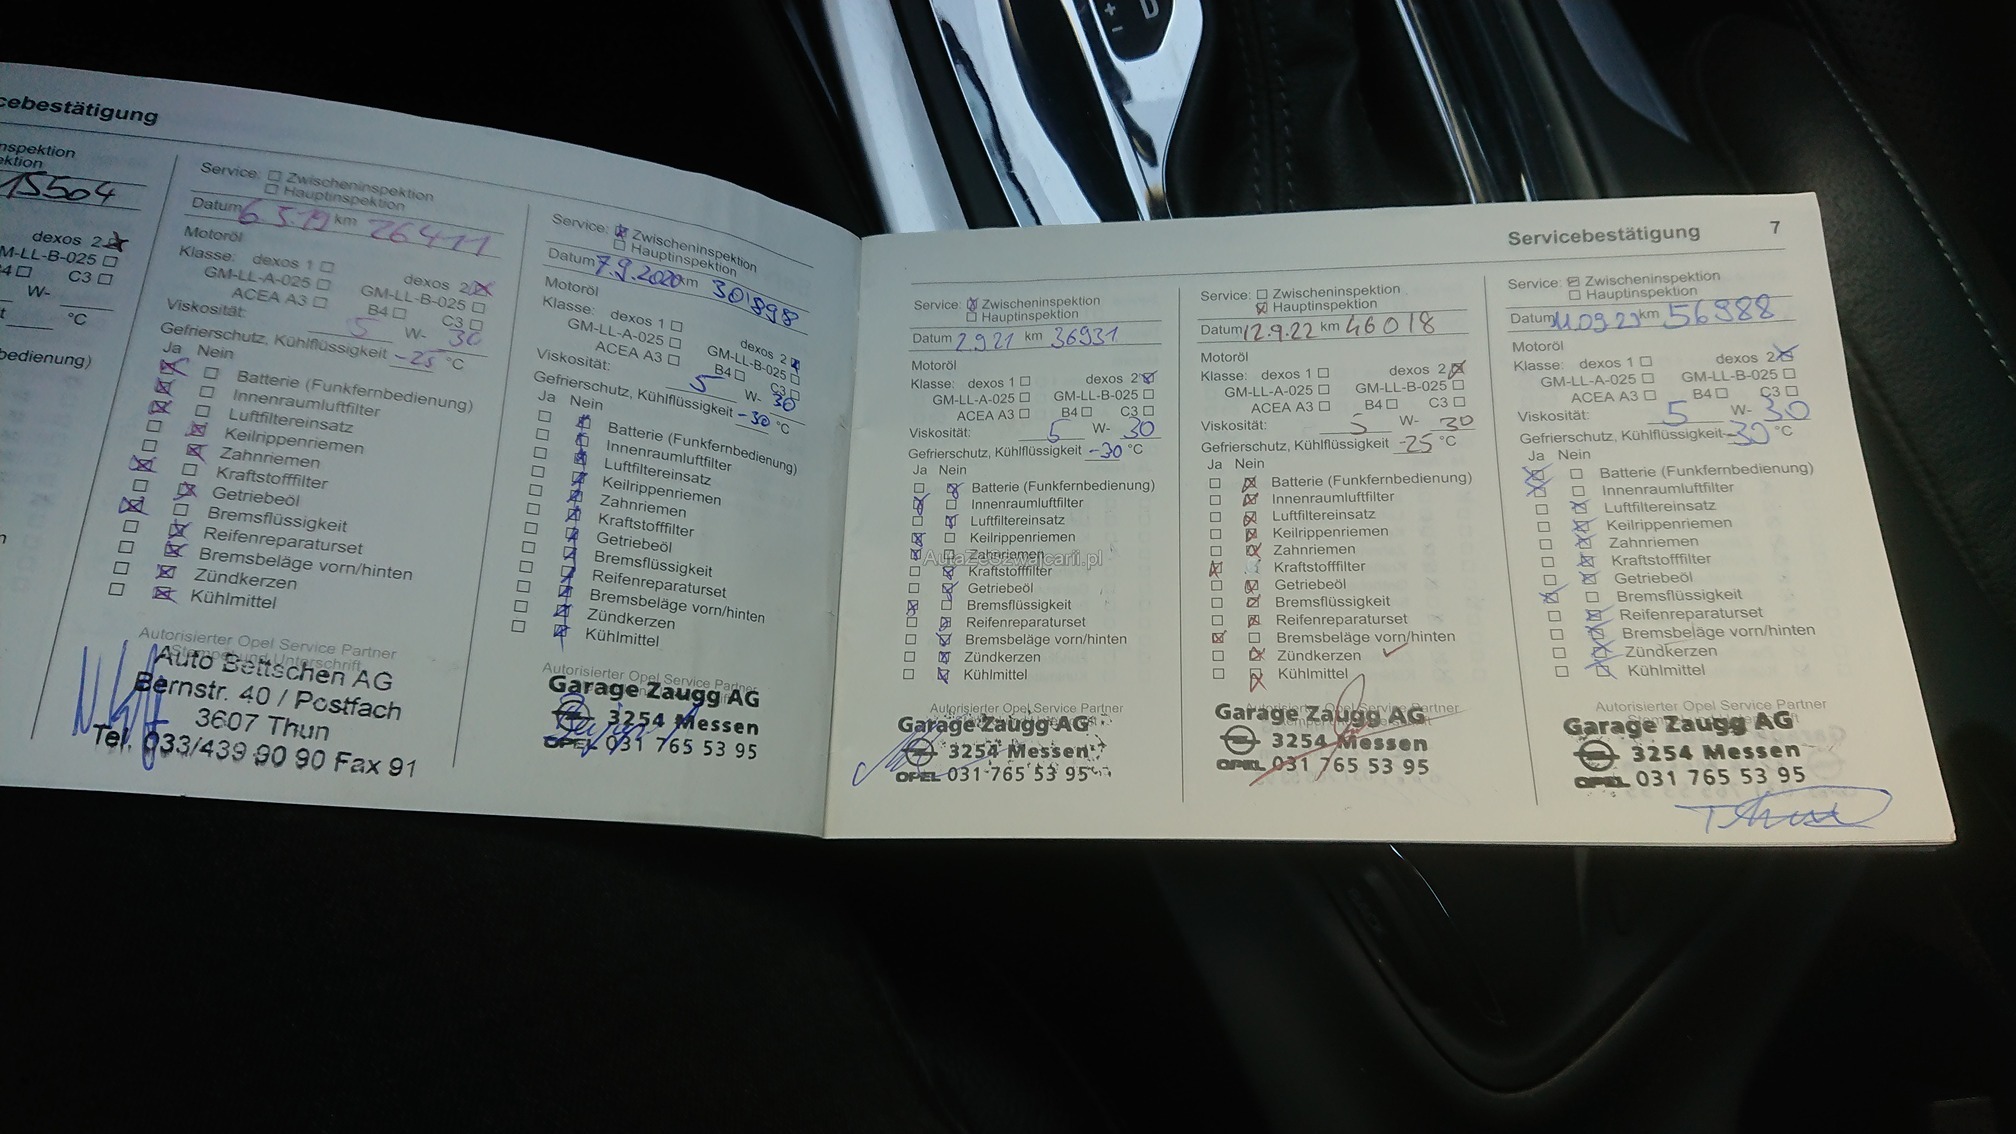 cebestätigung
nspektion
ektion
15504
dexos 2
M-LL-B-025
4 C3
W-
°C
bedienung)
Service: Zwischeninspektion
Hauptinspektion
Datum 6.5.19 km 26411
Motoröl
Klasse: dexos 1 dexos 2
GM-LL-A-025 GM-LL-B-025
ACEA A3 B4 C3
Viskosität: 5 W- 30
Gefrierschutz, Kühlflüssigkeit -25 °C
Ja Nein
Batterie (Funkfernbedienung)
Innenraumluftfilter
Luftfiltereinsatz
Keilrippenriemen
Zahnriemen
Kraftstofffilter
Getriebeöl
Bremsflüssigkeit
Reifenreparaturset
Bremsbeläge vorn/hinten
Zündkerzen
Kühlmittel
Autorisierter Opel Service Partner
Stempel und Unterschrift
Auto Bettschen AG
Bernstr. 40 / Postfach
3607 Thun
Tel. 033/439 90 90 Fax 91
Service: Zwischeninspektion
Hauptinspektion
Datum 7.9.2020 km 301898
Motoröl
Klasse: dexos 1 dexos 2
GM-LL-A-025 GM-LL-B-025
ACEA A3 B4 C3
Viskosität: 5 W- 30
Gefrierschutz, Kühlflüssigkeit -30 °C
Ja Nein
Batterie (Funkfernbedienung)
Innenraumluftfilter
Luftfiltereinsatz
Keilrippenriemen
Zahnriemen
Kraftstofffilter
Getriebeöl
Bremsflüssigkeit
Reifenreparaturset
Bremsbeläge vorn/hinten
Zündkerzen
Kühlmittel
Autorisierter Opel Service Partner
Garage Zaugg AG
3254 Messen
OPEL 031 765 53 95
Servicebestätigung 7
Service: Zwischeninspektion
Hauptinspektion
Datum 2.9.21 km 36931
Motoröl
Klasse: dexos 1 dexos 2
GM-LL-A-025 GM-LL-B-025
ACEA A3 B4 C3
Viskosität: 5 W- 30
Gefrierschutz, Kühlflüssigkeit -30 °C
Ja Nein
Batterie (Funkfernbedienung)
Innenraumluftfilter
Luftfiltereinsatz
Keilrippenriemen
Zahnriemen
AutaZeSzwajcarii.pl
Kraftstofffilter
Getriebeöl
Bremsflüssigkeit
Reifenreparaturset
Bremsbeläge vorn/hinten
Zündkerzen
Kühlmittel
Autorisierter Opel Service Partner
Garage Zaugg AG
3254 Messen
OPEL 031 765 53 95
Service: Zwischeninspektion
Hauptinspektion
Datum 12.9.22 km 46018
Motoröl
Klasse: dexos 1 dexos 2
GM-LL-A-025 GM-LL-B-025
ACEA A3 B4 C3
Viskosität: 5 W- 30
Gefrierschutz, Kühlflüssigkeit -25 °C
Ja Nein
Batterie (Funkfernbedienung)
Innenraumluftfilter
Luftfiltereinsatz
Keilrippenriemen
Zahnriemen
Kraftstofffilter
Getriebeöl
Bremsflüssigkeit
Reifenreparaturset
Bremsbeläge vorn/hinten
Zündkerzen
Kühlmittel
Autorisierter Opel Service Partner
Garage Zaugg AG
3254 Messen
OPEL 031 765 53 95
Service: Zwischeninspektion
Hauptinspektion
Datum 11.09.23 km 56988
Motoröl
Klasse: dexos 1 dexos 2
GM-LL-A-025 GM-LL-B-025
ACEA A3 B4 C3
Viskosität: 5 W- 30
Gefrierschutz, Kühlflüssigkeit -30 °C
Ja Nein
Batterie (Funkfernbedienung)
Innenraumluftfilter
Luftfiltereinsatz
Keilrippenriemen
Zahnriemen
Kraftstofffilter
Getriebeöl
Bremsflüssigkeit
Reifenreparaturset
Bremsbeläge vorn/hinten
Zündkerzen
Kühlmittel
Autorisierter Opel Service Partner
Garage Zaugg AG
3254 Messen
OPEL 031 765 53 95
+ D
−